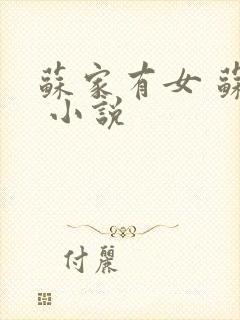 蘇家有女 蘇
小說
付麗